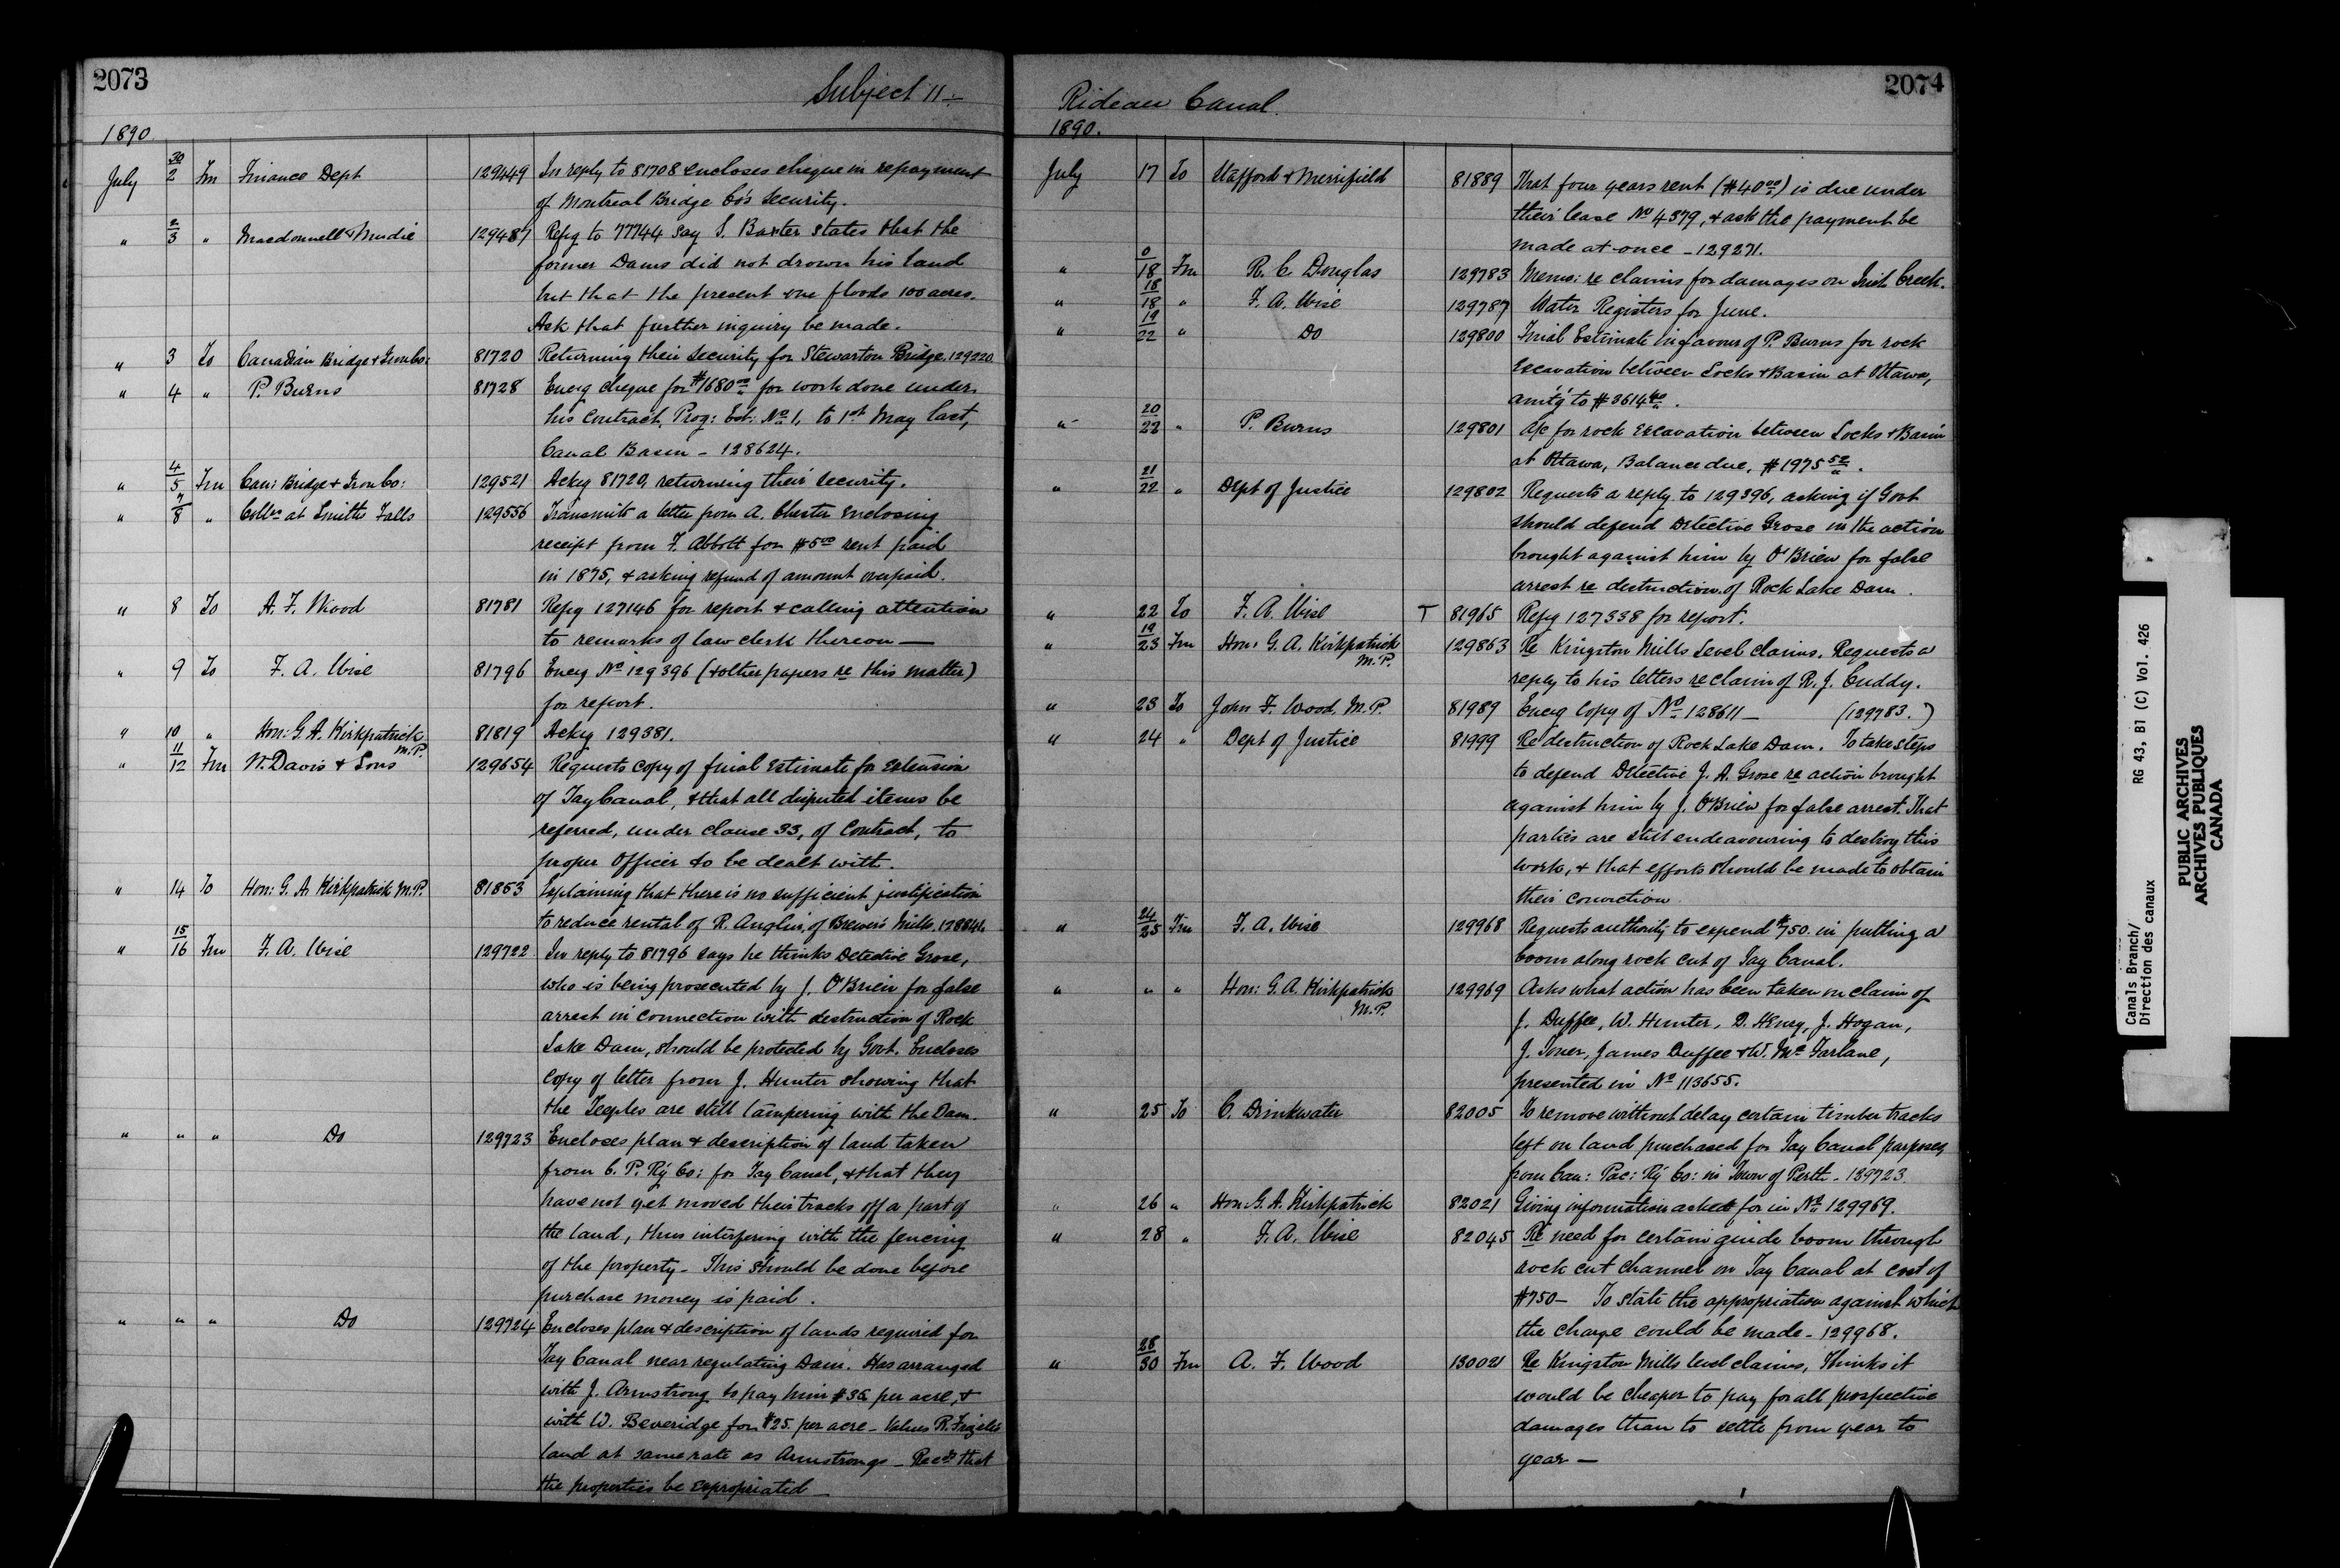 2073
Subject 11 –
1890
July 30/2 Fm Finance Dept 129449 In reply to 81708 encloses cheque in repayment
of Montreal Bridge Co's Security.
" 2/3 " Macdonnell & Mudie 129487 Refg to 77744 say S. Baxter states that the
former Dams did not drown his land
but that the present one floods 100 acres.
Ask that further inquiry be made.
" 3 To Canadian Bridge & Iron Co: 81720 Returning their security for Stewarton Bridge. 129220
" 4 " P. Burns 81728 Encg cheque for $1680.00 for work done under
his Contract, Prog: Est: No 1, to 1st May last,
Canal Basin – 128624.
" 4/5 Fm Can: Bridge & Iron Co: 129521 Ackg 81720, returning their security.
" 7/8 " Collr at Smiths Falls 129556 Transmits a letter from A. Chester enclosing
receipt from F. Abbott for $5.00 rent paid
in 1875, & asking refund of amount overpaid.
" 8 To A. F. Wood 81781 Refg 127146 for report & calling attention
to remarks of law clerk thereon —
" 9 To F. A. Wise 81796 Encg No 129396 (& other papers re this matter)
for report.
" 10 " Hon: G. A. Kirkpatrick M.P. 81819 Ackg 129381.
" 11/12 Fm W. Davis & Sons 129654 Requests copy of final Estimate for Extension
of Tay Canal, & that all disputed items be
referred, under clause 33, of Contract, to
proper Officer to be dealt with.
" 14 To Hon: G. A. Kirkpatrick M.P. 81853 Explaining that there is no sufficient justification
to reduce rental of R. Anglin, of Brewer's Mills.
" 15/16 Fm F. A. Wise 129722 In reply to 81796 says he thinks Detective Grose,
who is being prosecuted by J. O'Brien for false
arrest in connection with destruction of Rock
Lake Dam, should be protected by Govt. Encloses
copy of letter from J. Hunter showing that
the Teeples are still tampering with the Dam.
" " " Do 129723 Encloses plan & description of land taken
from C. P. Ry Co: for Tay Canal, & that they
have not yet moved their tracks off a part of
the land, thus interfering with the fencing
of the property – This should be done before
purchase money is paid.
" " " Do 129724 Encloses plan & description of lands required for
Tay Canal near regulating Dam. Has arranged
with J. Armstrong to pay him $35 per acre, &
with W. Beveridge for $25. per acre – Values R. land at same rate as Armstrongs – Recds that
the properties be expropriated —
2074
Rideau Canal.
1890.
July 17 To Stafford & Merrifield 81889 That four years rent ($40.00) is due under
their lease No 4379, & ask the payment be
made at once – 129271.
" 0/18 Fm R. C. Douglas 129783 Memo: re claims for damages on Irish Creek.
" 18/18 " F. A. Wise 129787 Water Registers for June.
" 19/22 " Do 129800 Final Estimate in favour of P. Burns for rock
Excavation between Locks & Basin at Ottawa,
amt'g to $3614.40.
" 20/22 " P. Burns 129801 A/c for rock Excavation between Locks & Basin
at Ottawa, Balance due, $1975.52.
" 21/22 " Dept of Justice 129802 Requests a reply to 129396, asking if Govt
should defend Detective Grose in the action
brought against him by O'Brien for false
arrest re destruction of Rock Lake Dam.
" 22 To F. A. Wise T 81965 Refg 127338 for report.
" 19/23 Fm Hon: G. A. Kirkpatrick M.P. 129863 Re Kingston Mills Level claims. Requests a
reply to his letters re claim of R. J. Cuddy.
" 23 To John F. Wood, M.P. 81989 Encg Copy of No 128611 — (129783.)
" 24 " Dept of Justice 81999 Re destruction of Rock Lake Dam. To take steps
to defend Detective J. A. Grose re action brought
against him by J. O'Brien for false arrest. That
parties are still endeavouring to destroy this
work, & that efforts should be made to obtain
their conviction
" 24/25 Fm F. A. Wise 129968 Requests authority to expend $750. in putting a
boom along rock cut of Tay Canal.
" " " Hon: G. A. Kirkpatrick M.P. 129969 Asks what action has been taken on claim of
J. Duffee, W. Hunter, D. Henry, J. Hogan,
J. Toner, James Duffee & W. McFarlane,
presented in No 113655.
" 25 To C. Drinkwater 82005 To remove without delay certain timber tracks
left on land purchased for Tay Canal purposes,
from Can: Pac: Ry Co: in Town of Perth – 129723
" 26 " Hon: G. A. Kirkpatrick 82021 Giving information asked for in No 129969.
" 28 " F. A. Wise 82045 Re need for certain guide boom through
rock cut channel on Tay Canal at cost of
$750 – To state the appropriation against which
the charge could be made – 129968.
" 28/30 Fm A. F. Wood 130021 Re Kingston Mills level claims, Thinks it
would be cheaper to pay for all prospective
damages than to settle from year to
year —
Canals Branch/
Direction des canaux
RG 43, B1 (C) Vol. 426
PUBLIC ARCHIVES
ARCHIVES PUBLIQUES
CANADA